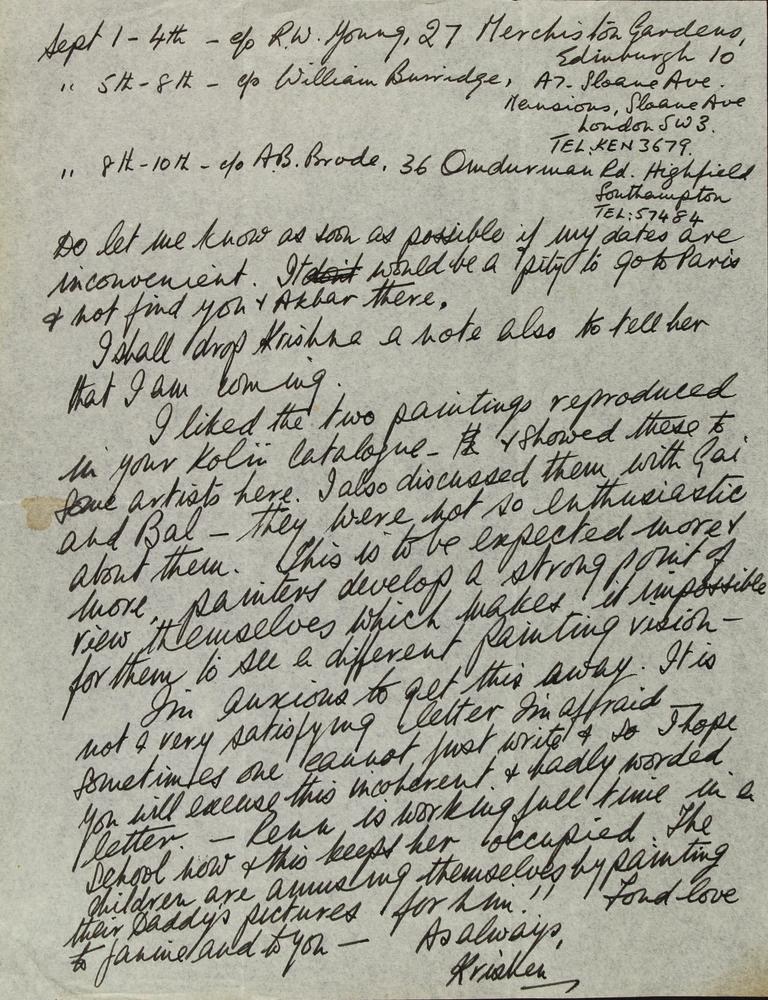 Sept 1 - 4th - c/o R.W. Young, 27 Merchiston Gardens,
Edinburgh 10
" 5th - 8th - c/o William Burridge, A7. Sloane Ave.
Mansions, Sloane Ave
London SW3.
TEL: KEN 3679.
" 8th - 10th - c/o A.B. Brode, 36 Omdurman Rd. Highfield
Southampton
TEL: 57484
Do let me know as soon as possible if my dates are
inconvenient. It don't would be a pity to go to Paris
& not find you & Akbar there.
I shall drop Krishna a note also to tell her
that I am coming.
I liked the two paintings reproduced
in your Kolii Catalogue - & showed these to
some artists here. I also discussed them with Gai
and Bal - they were not so enthusiastic
about them. This is to be expected more &
more, painters develop a strong point of
view themselves which makes it impossible
for them to see a different painting vision -
I'm anxious to get this away. It is
not a very satisfying letter I'm affraid -
sometimes one cannot just write & so I hope
you will excuse this incoherent & badly worded
letter. - Renu is working full time in a
School now & this keeps her occupied. The
children are amusing themselves by painting
their Daddy's pictures for him!! Fond love
to Janine and to you - As always,
Krishen